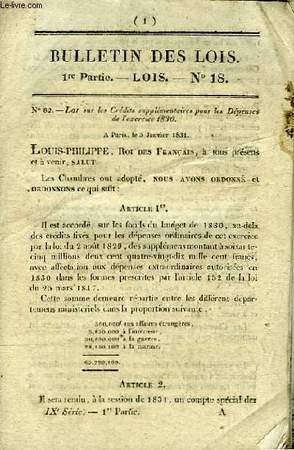 ( 1 )
BULLETIN DES LOIS.
1re Partie. — LOIS. — N° 18.
N° 82. — Loi sur les Crédits supplémentaires pour les Dépenses
de l'exercice 1830.
A Paris, le 5 Janvier 1831.
LOUIS-PHILIPPE, ROI DES FRANÇAIS, à tous présens
et à venir, SALUT.
Les Chambres ont adopté, NOUS AVONS ORDONNÉ et
ORDONNONS ce qui suit :
ARTICLE 1er.
Il est accordé, sur les fonds du budget de 1830, au-delà
des crédits fixés pour les dépenses ordinaires de cet exercice
par la loi du 2 août 1829, des supplémens montant à soixante-
cinq millions deux cent quatre-vingt-dix mille cent francs,
avec affectation aux dépenses extraordinaires autorisées en
1830 dans les formes prescrites par l'article 152 de la loi
du 25 mars 1817.
Cette somme demeure répartie entre les différens dépar-
temens ministériels dans la proportion suivante :
aux affaires étrangères,
à l'intérieur,
à la guerre,
à la marine.
ARTICLE 2.
Il sera rendu, à la session de 1831, un compte spécial des
IXe Série. — 1re Partie. A